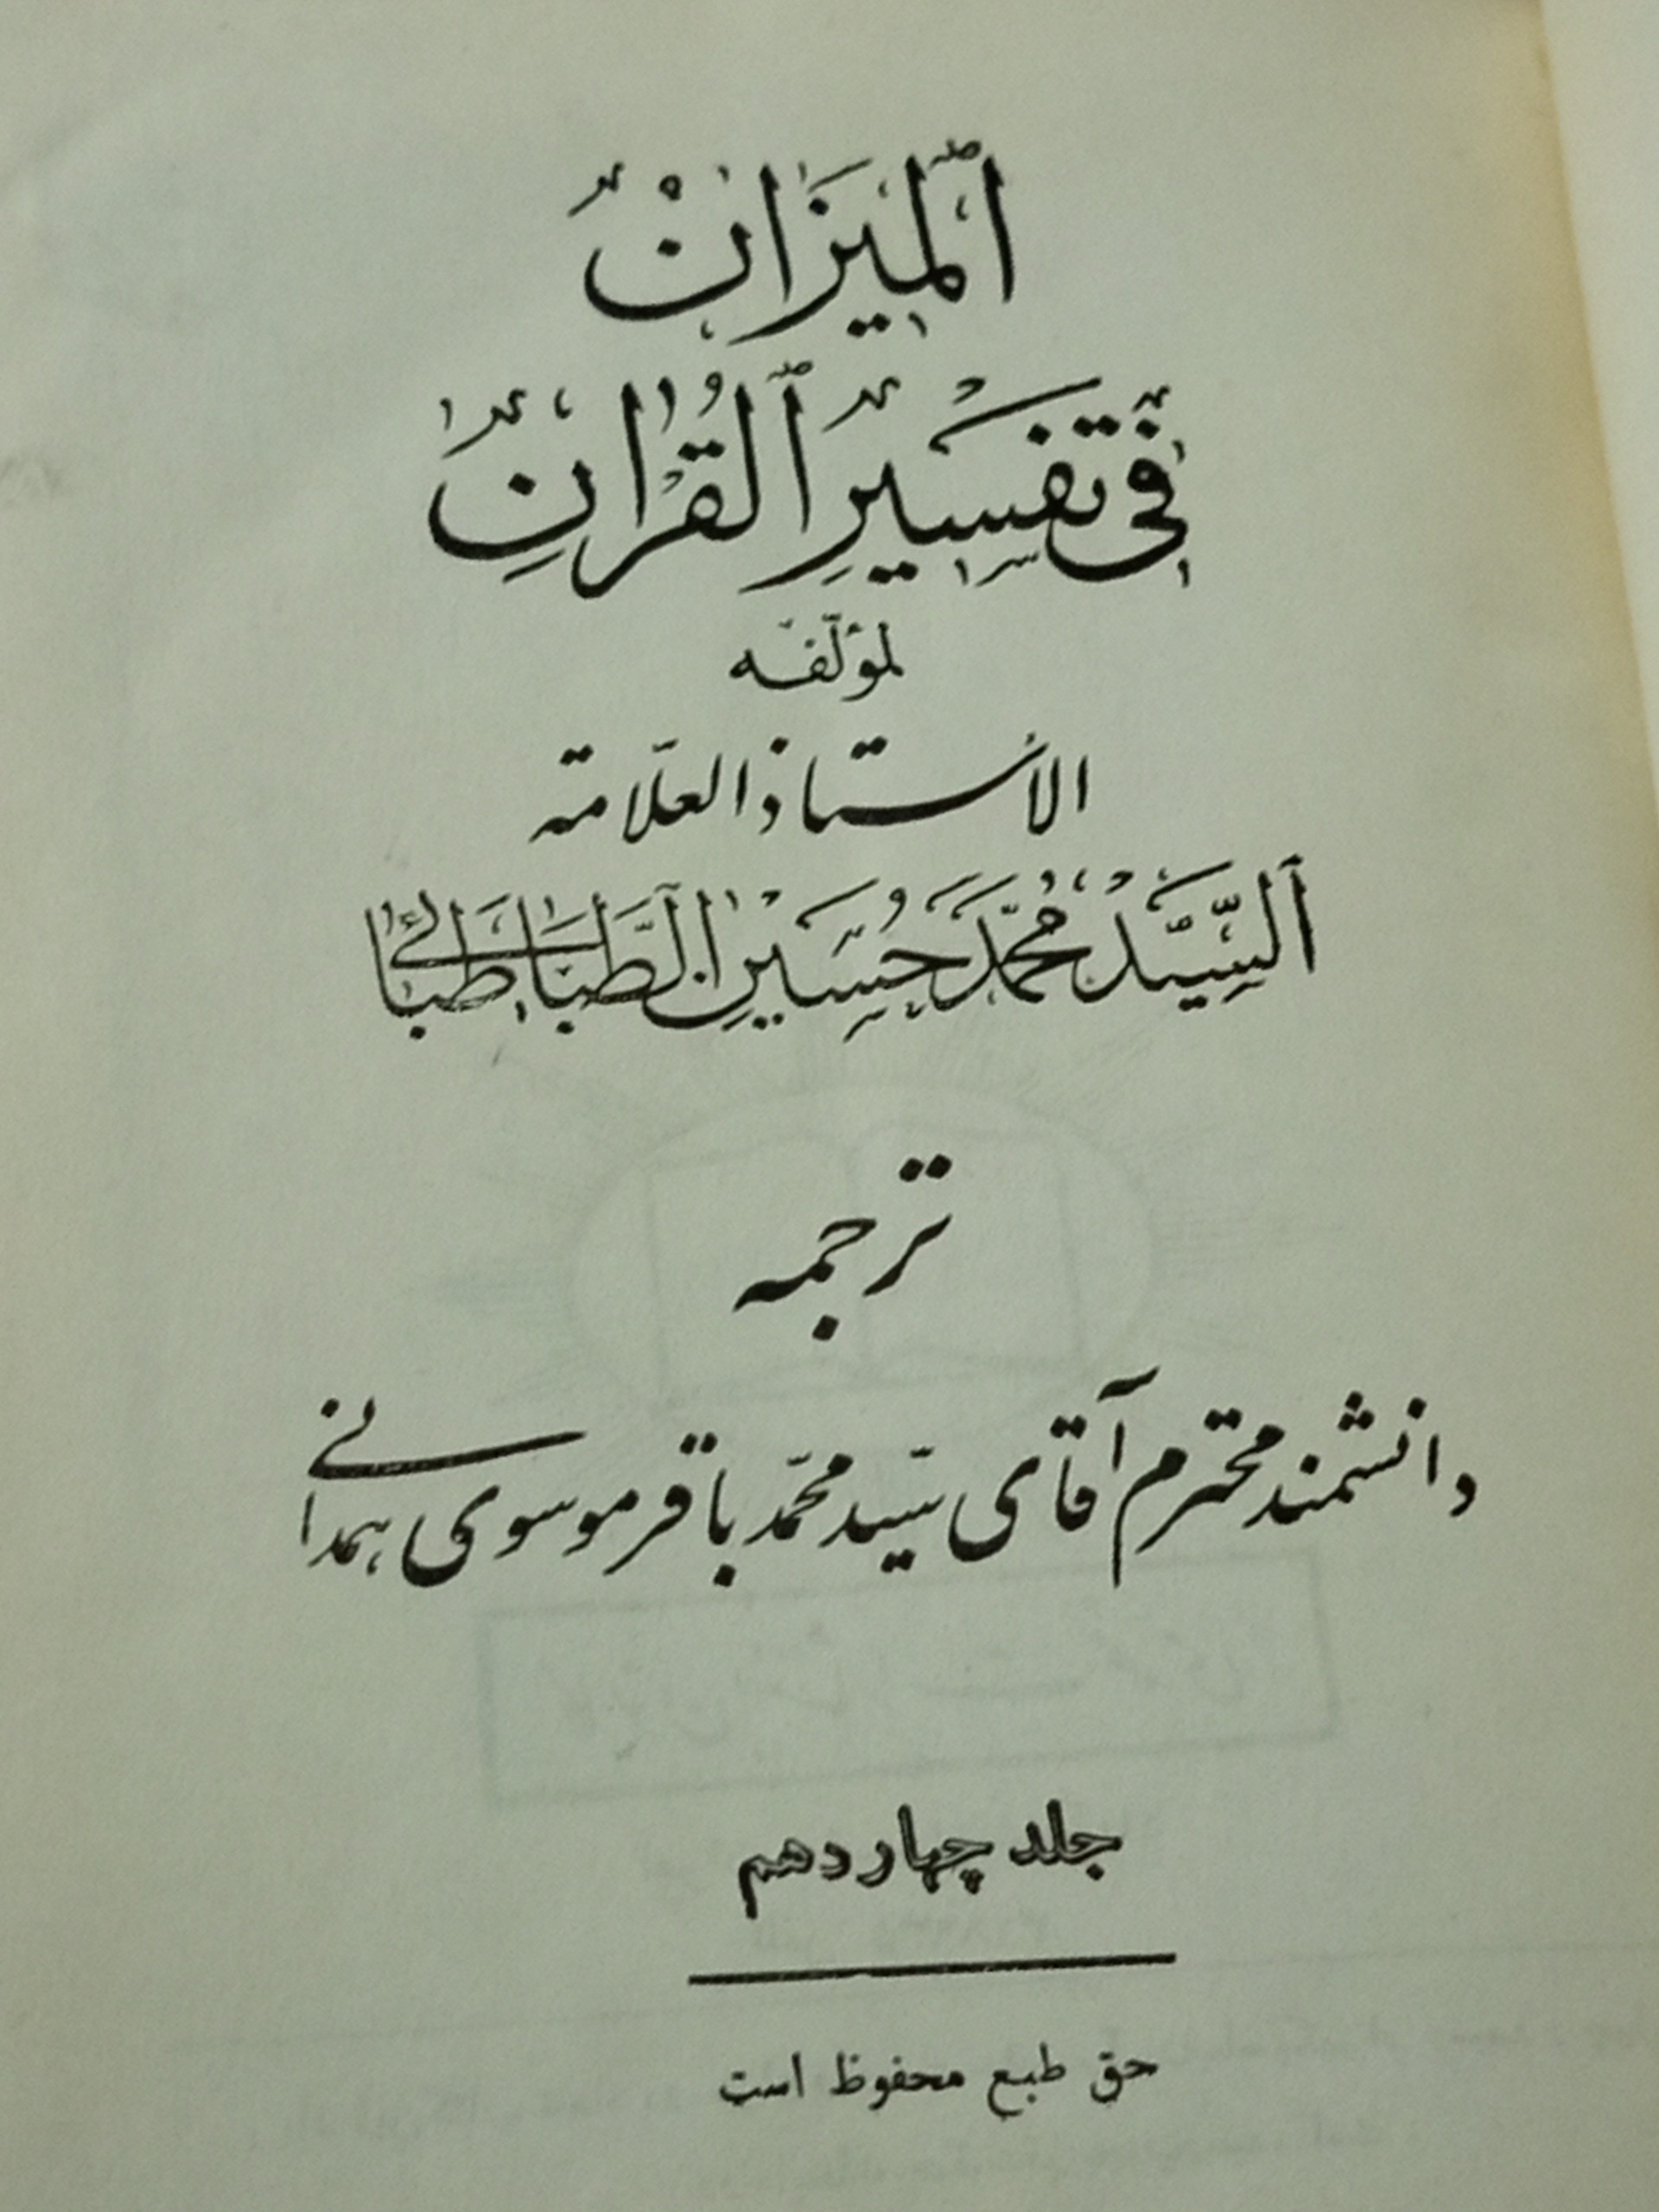 الميزان
في تفسير القرآن
لمؤلّفه
الأستاذ العلّامة
السيّد محمّد حسين الطباطبائي
ترجمه
دانشمند محترم آقای سیّد محمّد باقر موسوی همدانی
جلد چهاردهم
حق طبع محفوظ است